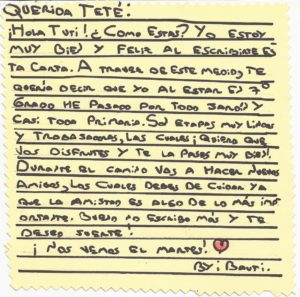 QUERIDA TETÉ:
¡HOLA TUTI! ¿COMO ESTAS? YO ESTOY
MUY BIEN Y FELIZ AL ESCRIBIRTE ES
TA CARTA. A TRAVES DE ESTE MEDIO, TE
QUERÍA DECIR QUE YO AL ESTAR EN 7°
GRADO HE PASADO POR TODO JARDÍN Y
CASI TODA PRIMARIA. SON ETAPAS MUY LINDAS
Y TRABAJADORAS, LAS CUALES ¡QUIERO QUE
VOS DISFRUTES Y TE LA PASES MUY BIEN!.
DURANTE EL CAMINO VAS A HACER NUEVOS
AMIGOS, LOS CUALES DEBES DE CUIDAR YA
QUE LA AMISTAD ES ALGO DE LO MÁS IM
PORTANTE. BUENO NO ESCRIBO MÁS Y TE
DESEO SUERTE!
¡NOS VEMOS EL MARTES!
BY: BAUTI.